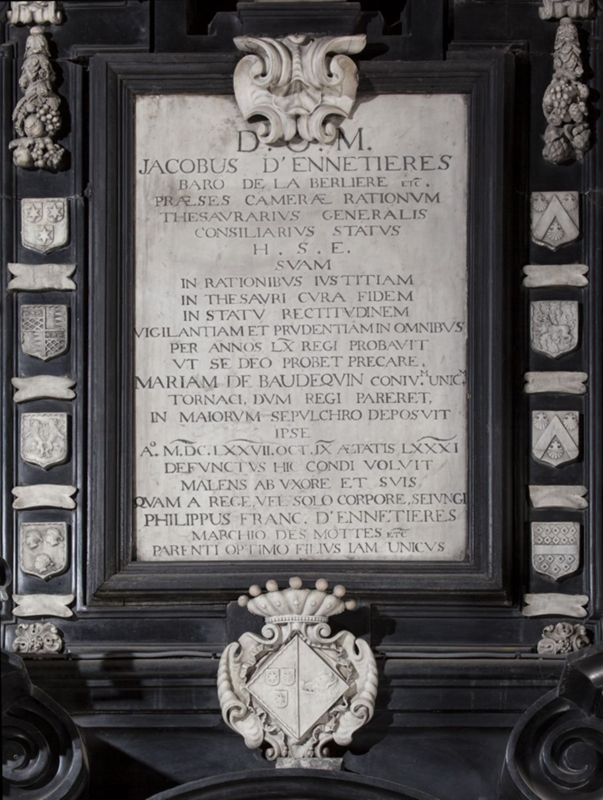 D. O. M.
JACOBUS D'ENNETIERES
BARO DE LA BERLIERE ETC.
PRÆSES CAMERÆ RATIONVM
THESAVRARIVS GENERALIS
CONSILIARIVS STATVS
H. S. E.
SVAM
IN RATIONIBUS IVSTITIAM
IN THESAVRI CVRA FIDEM
IN STATV RECTITVDINEM
VIGILANTIAM ET PRVDENTIAM IN OMNIBUS
PER ANNOS LX REGI PROBAVIT
VT SE DEO PROBET PRECARE,
MARIAM DE BAUDEQVIN CONIV.M UNIC.M
TORNACI, DVM REGI PARERET,
IN MAIORVM SEPVLCHRO DEPOSVIT
IPSE
A.o M.DC.LXXVII.OCT.IX ÆTATIS LXXXI
DEFUNCTVS HIC CONDI VOLVIT
MALENS AB VXORE ET SVIS,
QVAM A REGE, VEL SOLO CORPORE, SEIVNGI
PHILIPPUS FRANC. D'ENNETIERES
MARCHIO DES MOTTES ETC
PARENTI OPTIMO FILIVS IAM UNICVS